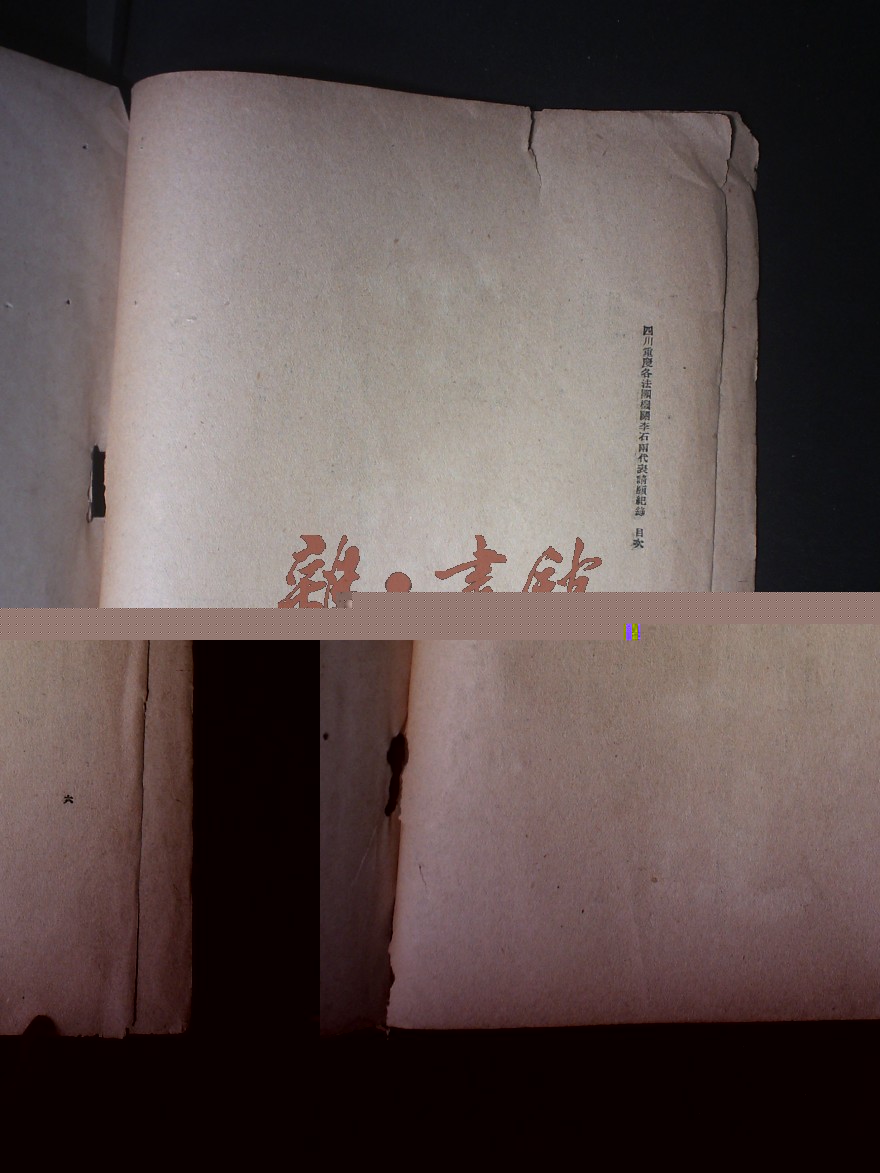 四川重慶各法團機關李石兩代表請願紀錄 目次
雜·書館
六